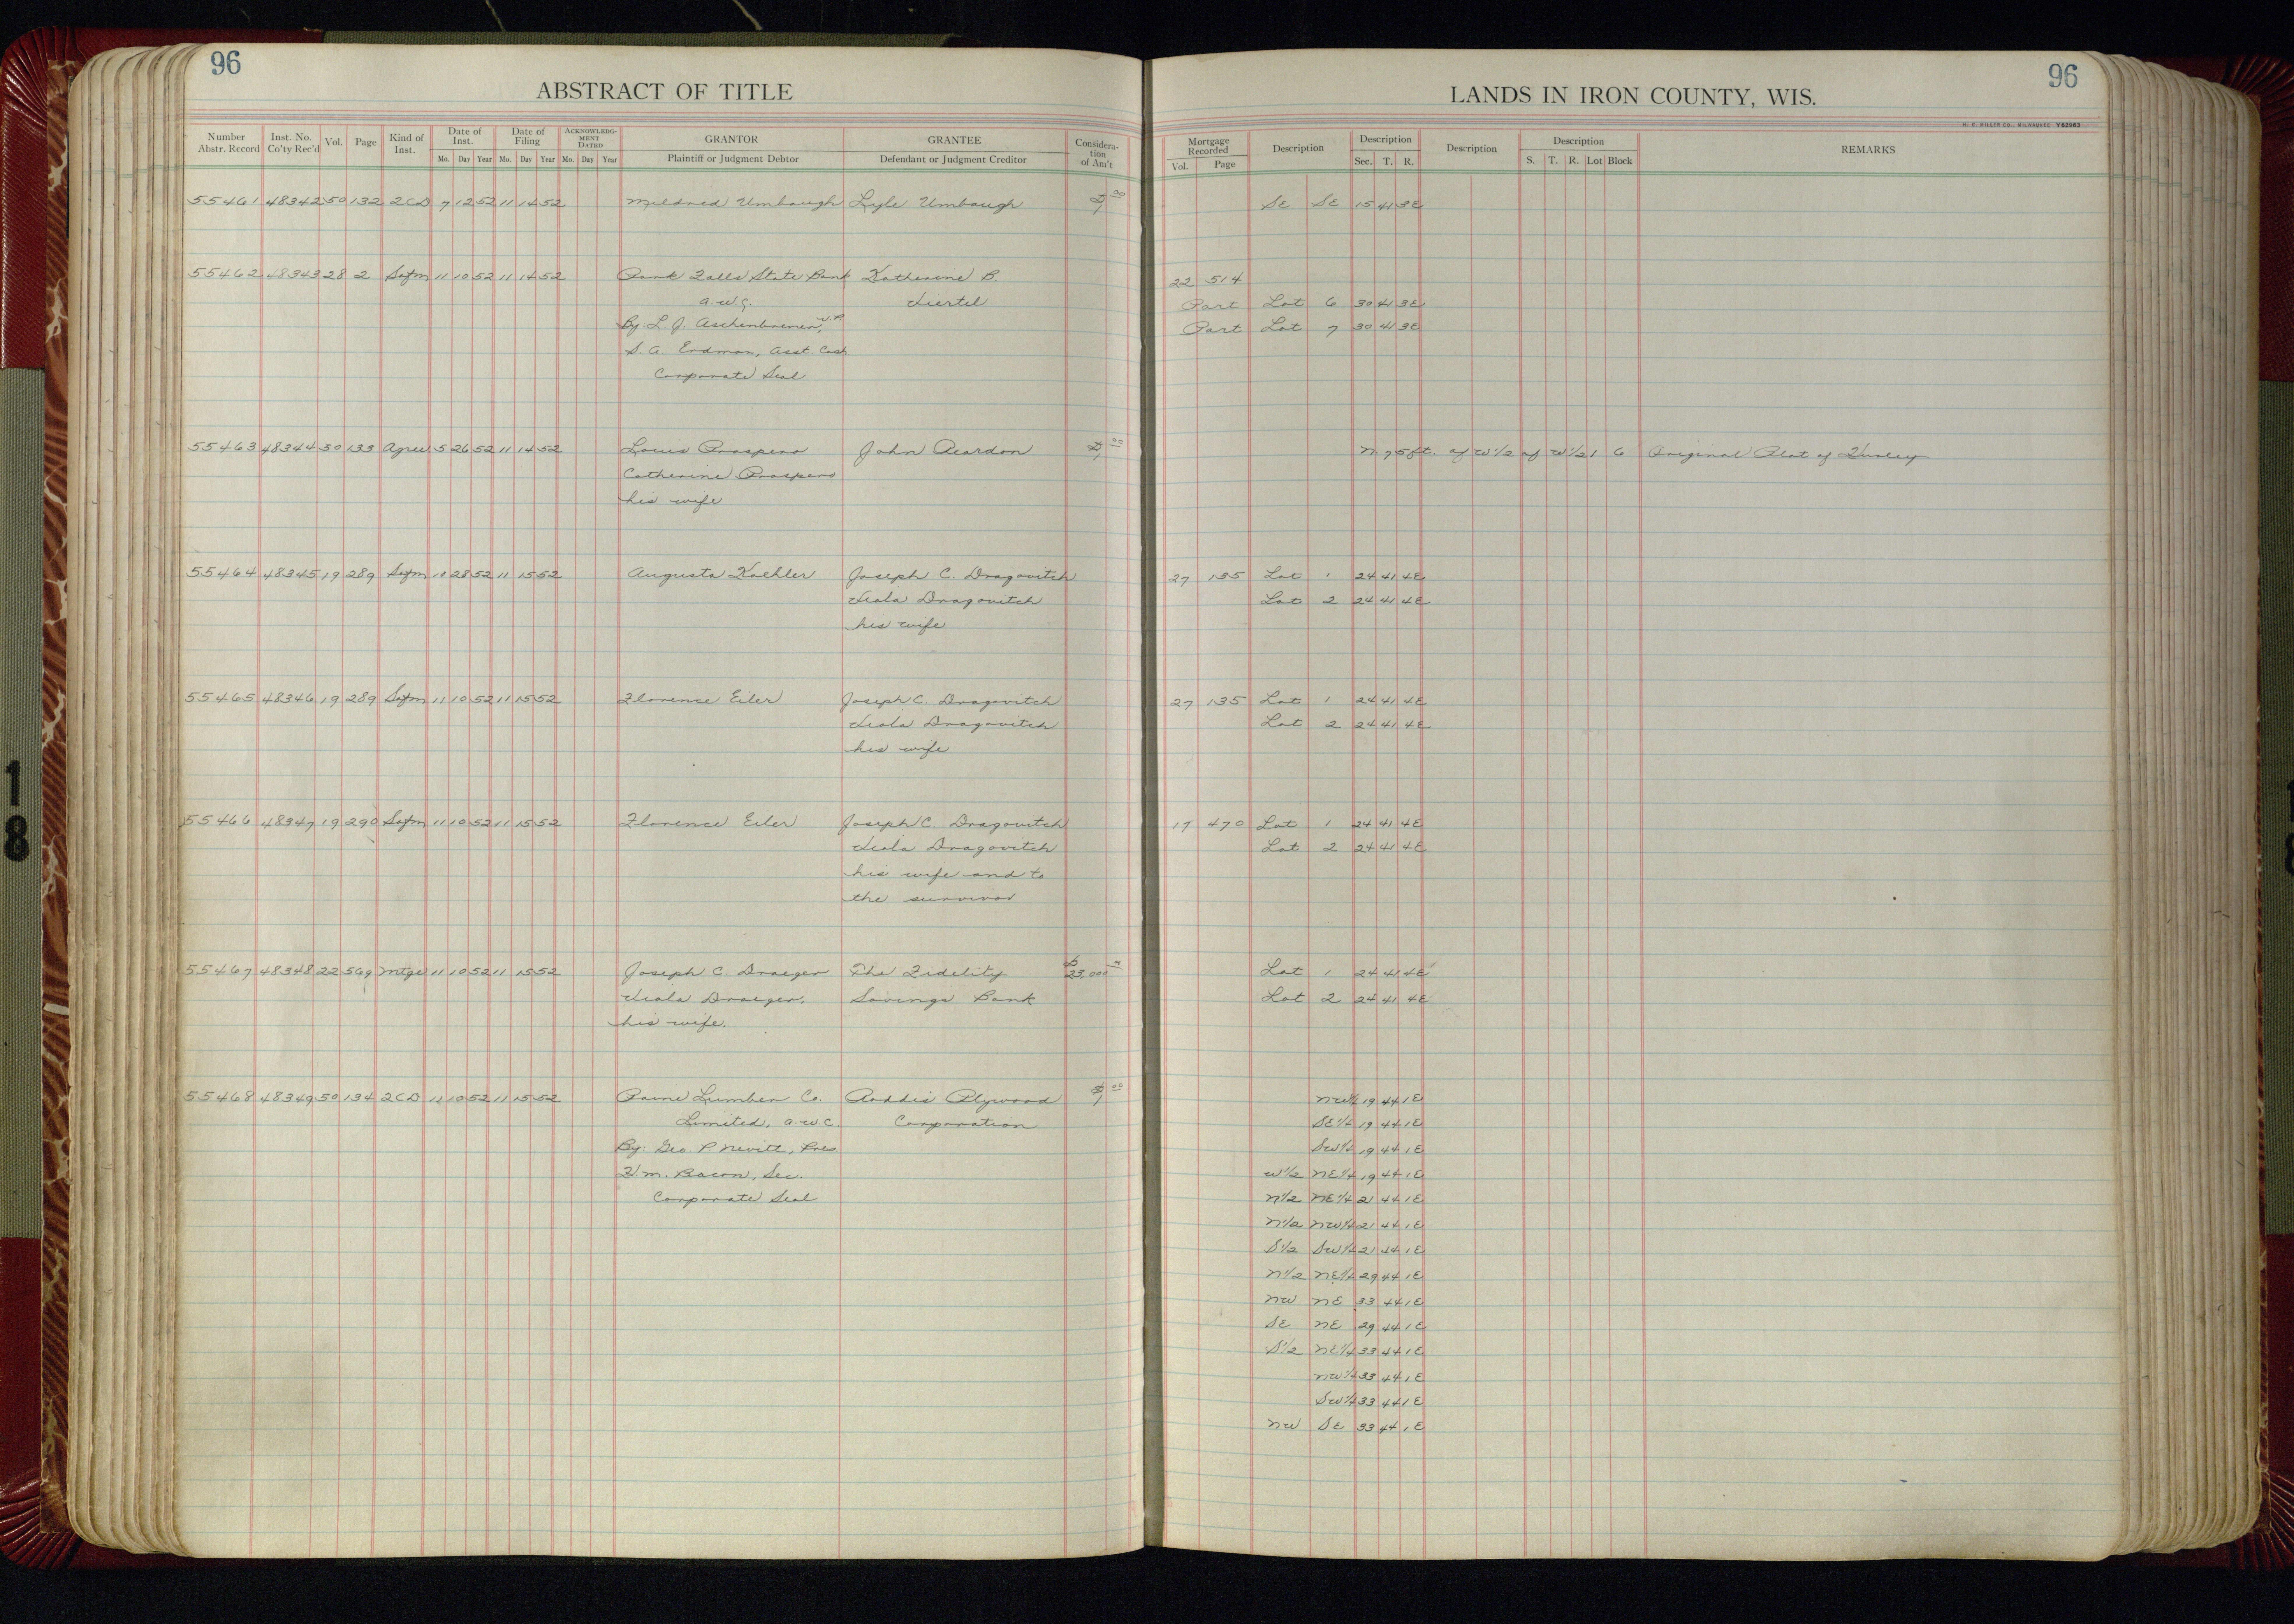 96
96
ABSTRACT OF TITLE
LANDS IN IRON COUNTY, WIS.
H. C. MILLER CO., MILWAUKEE Y62983
Number Abstr. Record Inst. No. Co'ty Rec'd Vol. Page Kind of Inst. Date of Inst. Mo. Day Year Date of Filing Mo. Day Year ACKNOWLEDGMENT DATED Mo. Day Year GRANTOR Plaintiff or Judgment Debtor GRANTEE Defendant or Judgment Creditor Consideration of Am't
Mortgage Recorded Vol. Page Description Description Sec. T. R. Description Description S. T. R. Lot Block REMARKS
55461 48342 50 132 2CD 7 12 52 11 14 52 Mildred Umbaugh Lyle Umbaugh $1 00 SE SE 15 41 3E
55462 48343 28 2 Satm 11 10 52 11 14 52 Park Falls State Bank Katherine B. 22 514
a.w.c. Part Lot 6 30 41 3E
By: L. J. Aschenbrener, V.P. Part Lot 7 30 41 3E
S. A. Erdman, Asst. Cash
Corporate Seal
55463 48344 50 133 Agree 5 26 52 11 14 52 Louis Prospero John Reardon $1 00 N. 75 ft. of W1/2 of W1/2 1 6 Original Plat of Hurley
Catherine Prospero
his wife
55464 48345 19 289 Satm 10 28 52 11 15 52 Augusta Koehler Joseph C. Dragovitch 27 135 Lot 1 24 41 4E
Dragovitch Lot 2 24 41 4E
his wife
55465 48346 19 289 Satm 11 10 52 11 15 52 Florence Eiler Joseph C. Dragovitch 27 135 Lot 1 24 41 4E
Dragovitch Lot 2 24 41 4E
his wife
55466 48347 19 290 Satm 11 10 52 11 15 52 Florence Eiler Joseph C. Dragovitch 17 470 Lot 1 24 41 4E
Dragovitch Lot 2 24 41 4E
his wife and to
the survivor
55467 48348 22 569 Mtge 11 10 52 11 15 52 Joseph C. Draeger The Fidelity $23,000 Lot 1 24 41 4E
Draeger, Savings Bank Lot 2 24 41 4E
his wife.
55468 48349 50 134 2CD 11 10 52 11 15 52 Paine Lumber Co. Roddis Plywood $1 00 NW1/4 19 44 1E
Limited, a.w.c. Corporation SE1/4 19 44 1E
By: Geo. P. Nevitt, Pres. SW1/4 19 44 1E
H. M. Bacon, Sec. W1/2 NE1/4 19 44 1E
Corporate Seal N1/2 NE1/4 21 44 1E
N1/2 NW1/4 21 44 1E
S1/2 SW1/4 21 44 1E
N1/2 NE1/4 29 44 1E
NW NE 33 44 1E
SE NE 29 44 1E
S1/2 NE1/4 33 44 1E
NW1/4 33 44 1E
SW1/4 33 44 1E
NW SE 33 44 1E
1
8